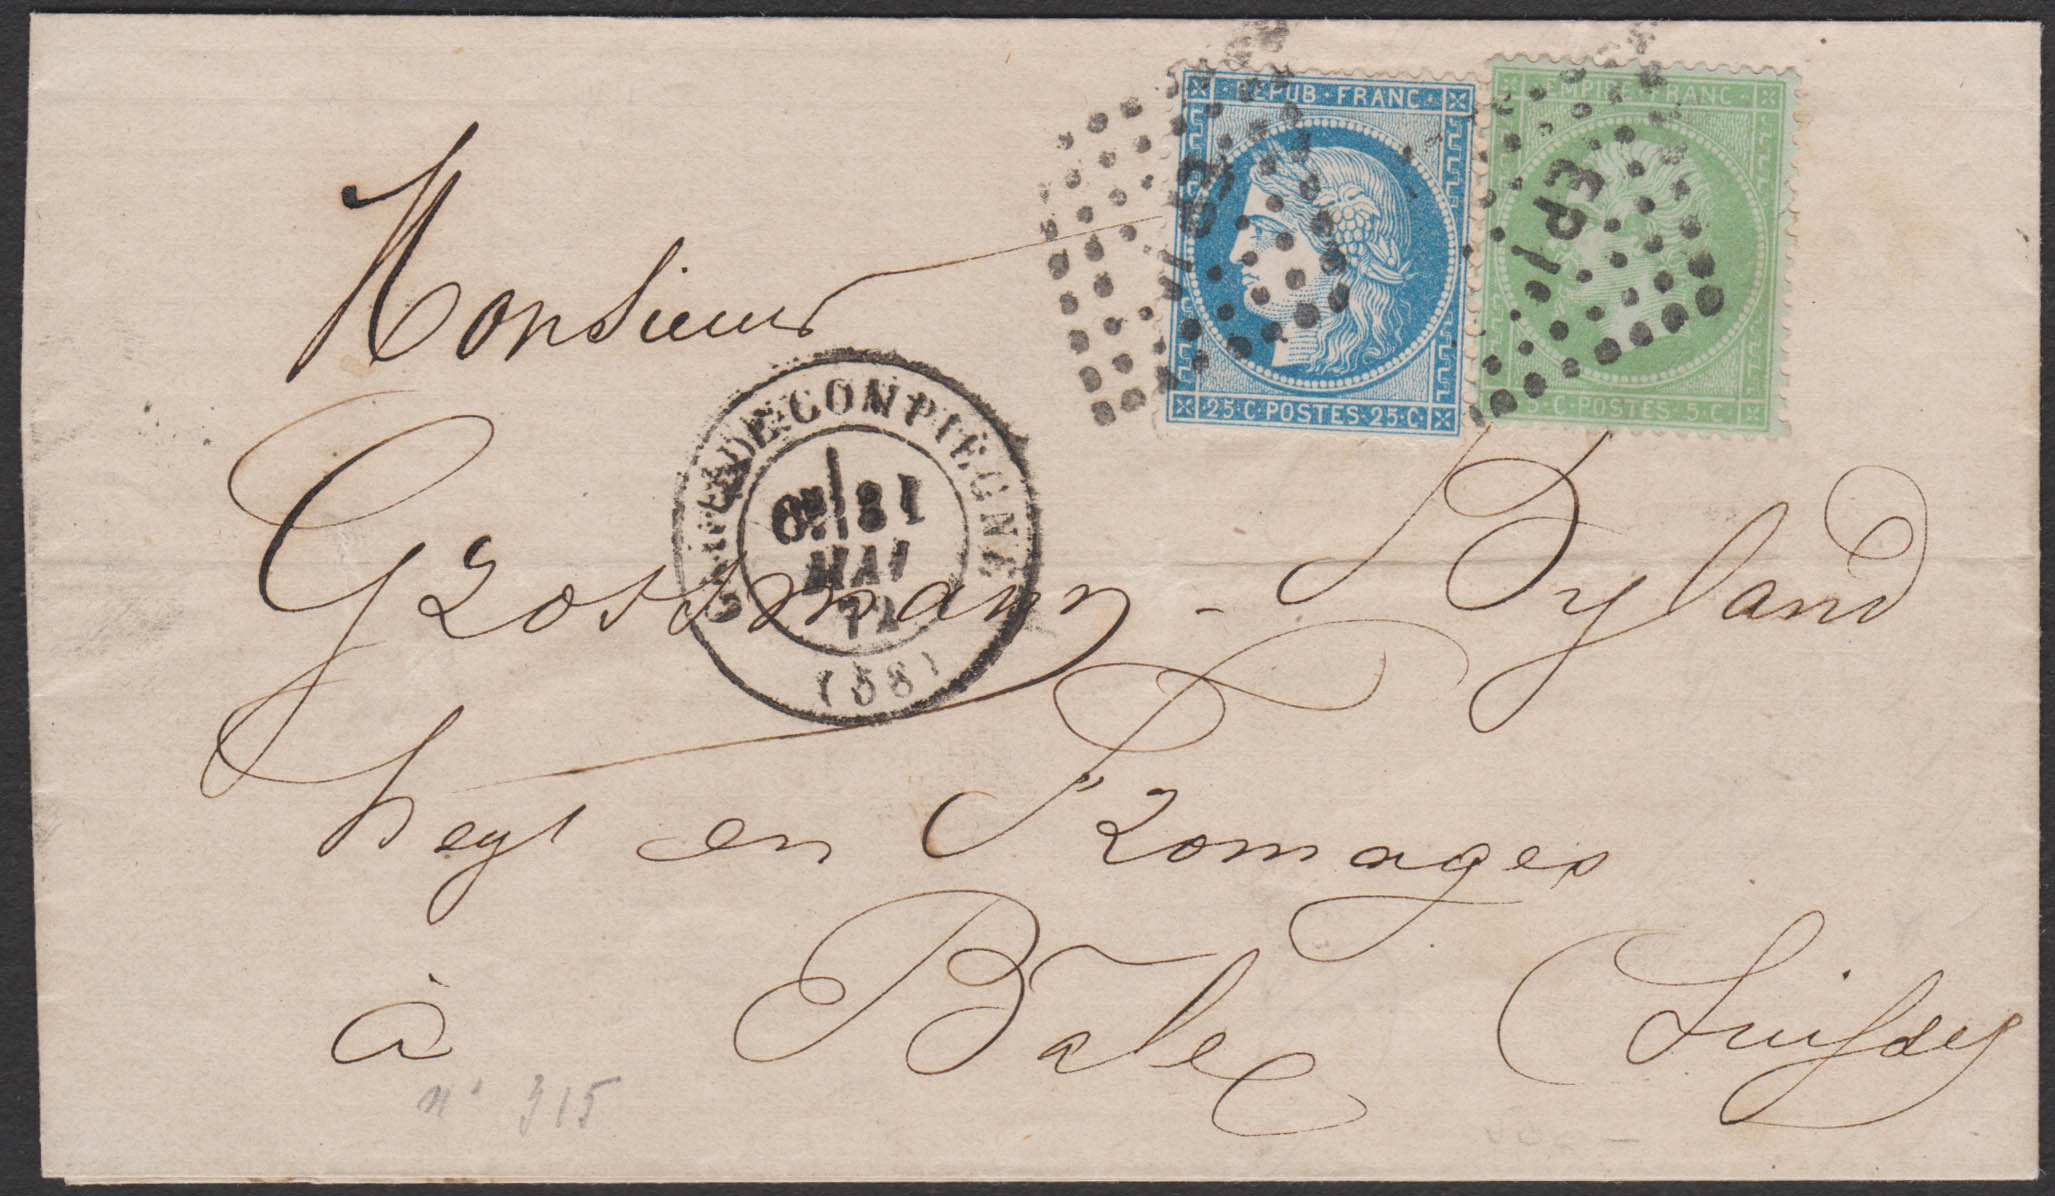 REPUB · FRANC ·
EMPIRE · FRANC ·
25 · C · POSTES · 25 · C ·
5 · C · POSTES · 5 · C ·
Monsieur
DE COMPIÈGNE
31
MAI
72
(58)
Grossmann - Ryland
en Fromages
à Bâle (Suisse)
n° 315